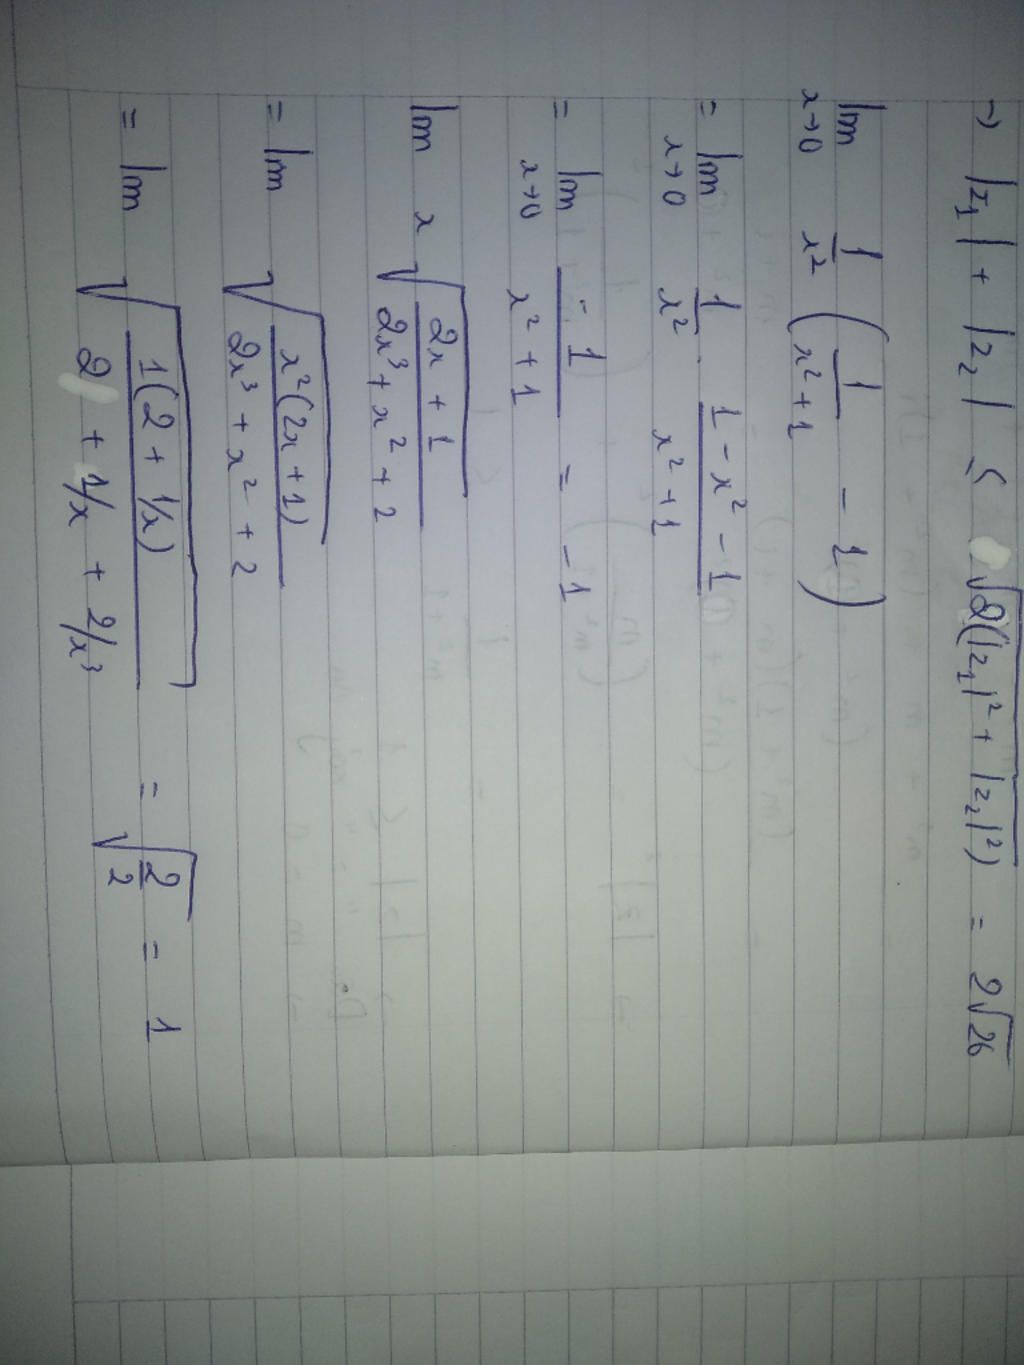 → |z₁| + |z₂| ≤ √(2(|z₁|² + |z₂|²)) = 2√26
lim x→0 1/x² (1/(x²+1) - 1)
= lim x→0 1/x² · (1 - x² - 1)/(x² + 1)
= lim x→0 -1/(x² + 1) = -1
lim x √((2x + 1)/(2x³ + x² + 2))
= lim √(x²(2x + 1)/(2x³ + x² + 2))
= lim √(1(2 + 1/x)/(2 + 1/x + 2/x³)) = √(2/2) = 1